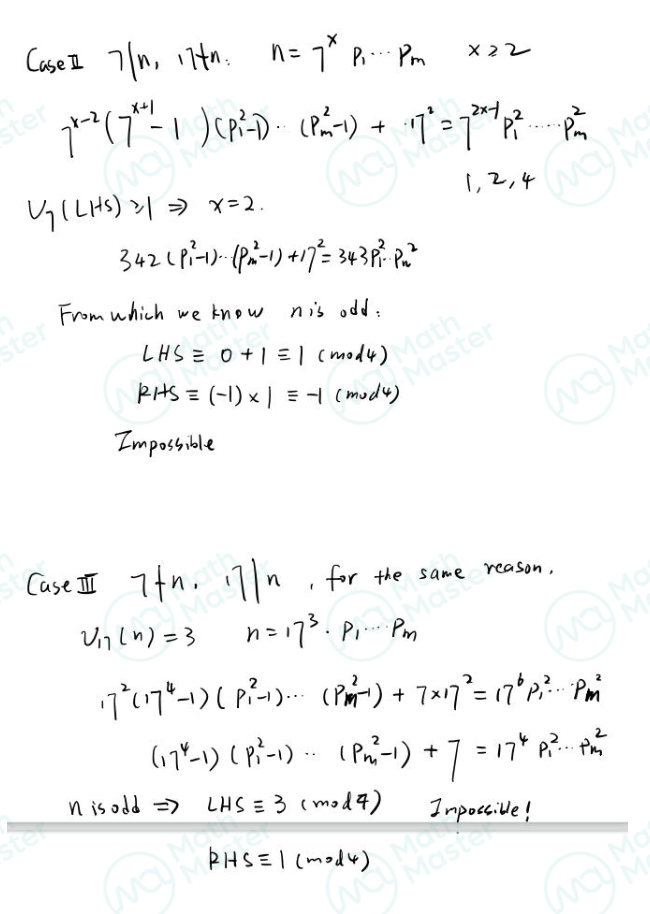 Case II 7|n, 17∤n. n = 7^x P₁⋯Pₘ x≥2
7^(x-2)(7^(x+1)-1)(P₁²-1)⋯(Pₘ²-1) + 17² = 7^(2x-1) P₁²⋯⋯Pₘ²
1, 2, 4
V₇(LHS) ≥1 ⇒ x=2.
342(P₁²-1)⋯(Pₘ²-1)+17² = 343P₁²⋯Pₘ²
From which we know n is odd:
LHS ≡ 0+1 ≡ 1 (mod4)
RHS ≡ (-1)×1 ≡ -1 (mod4)
Impossible
Case III 7∤n, 17|n, for the same reason.
V₁₇(n) = 3 n=17³·P₁⋯Pₘ
17²(17⁴-1)(P₁²-1)⋯(Pₘ²-1) + 7×17² = 17⁶P₁²⋯Pₘ²
(17⁴-1)(P₁²-1)⋯(Pₘ²-1) + 7 = 17⁴ P₁²⋯Pₘ²
n is odd ⇒ LHS ≡ 3 (mod4) Impossible!
RHS ≡ 1 (mod4)
Math Master